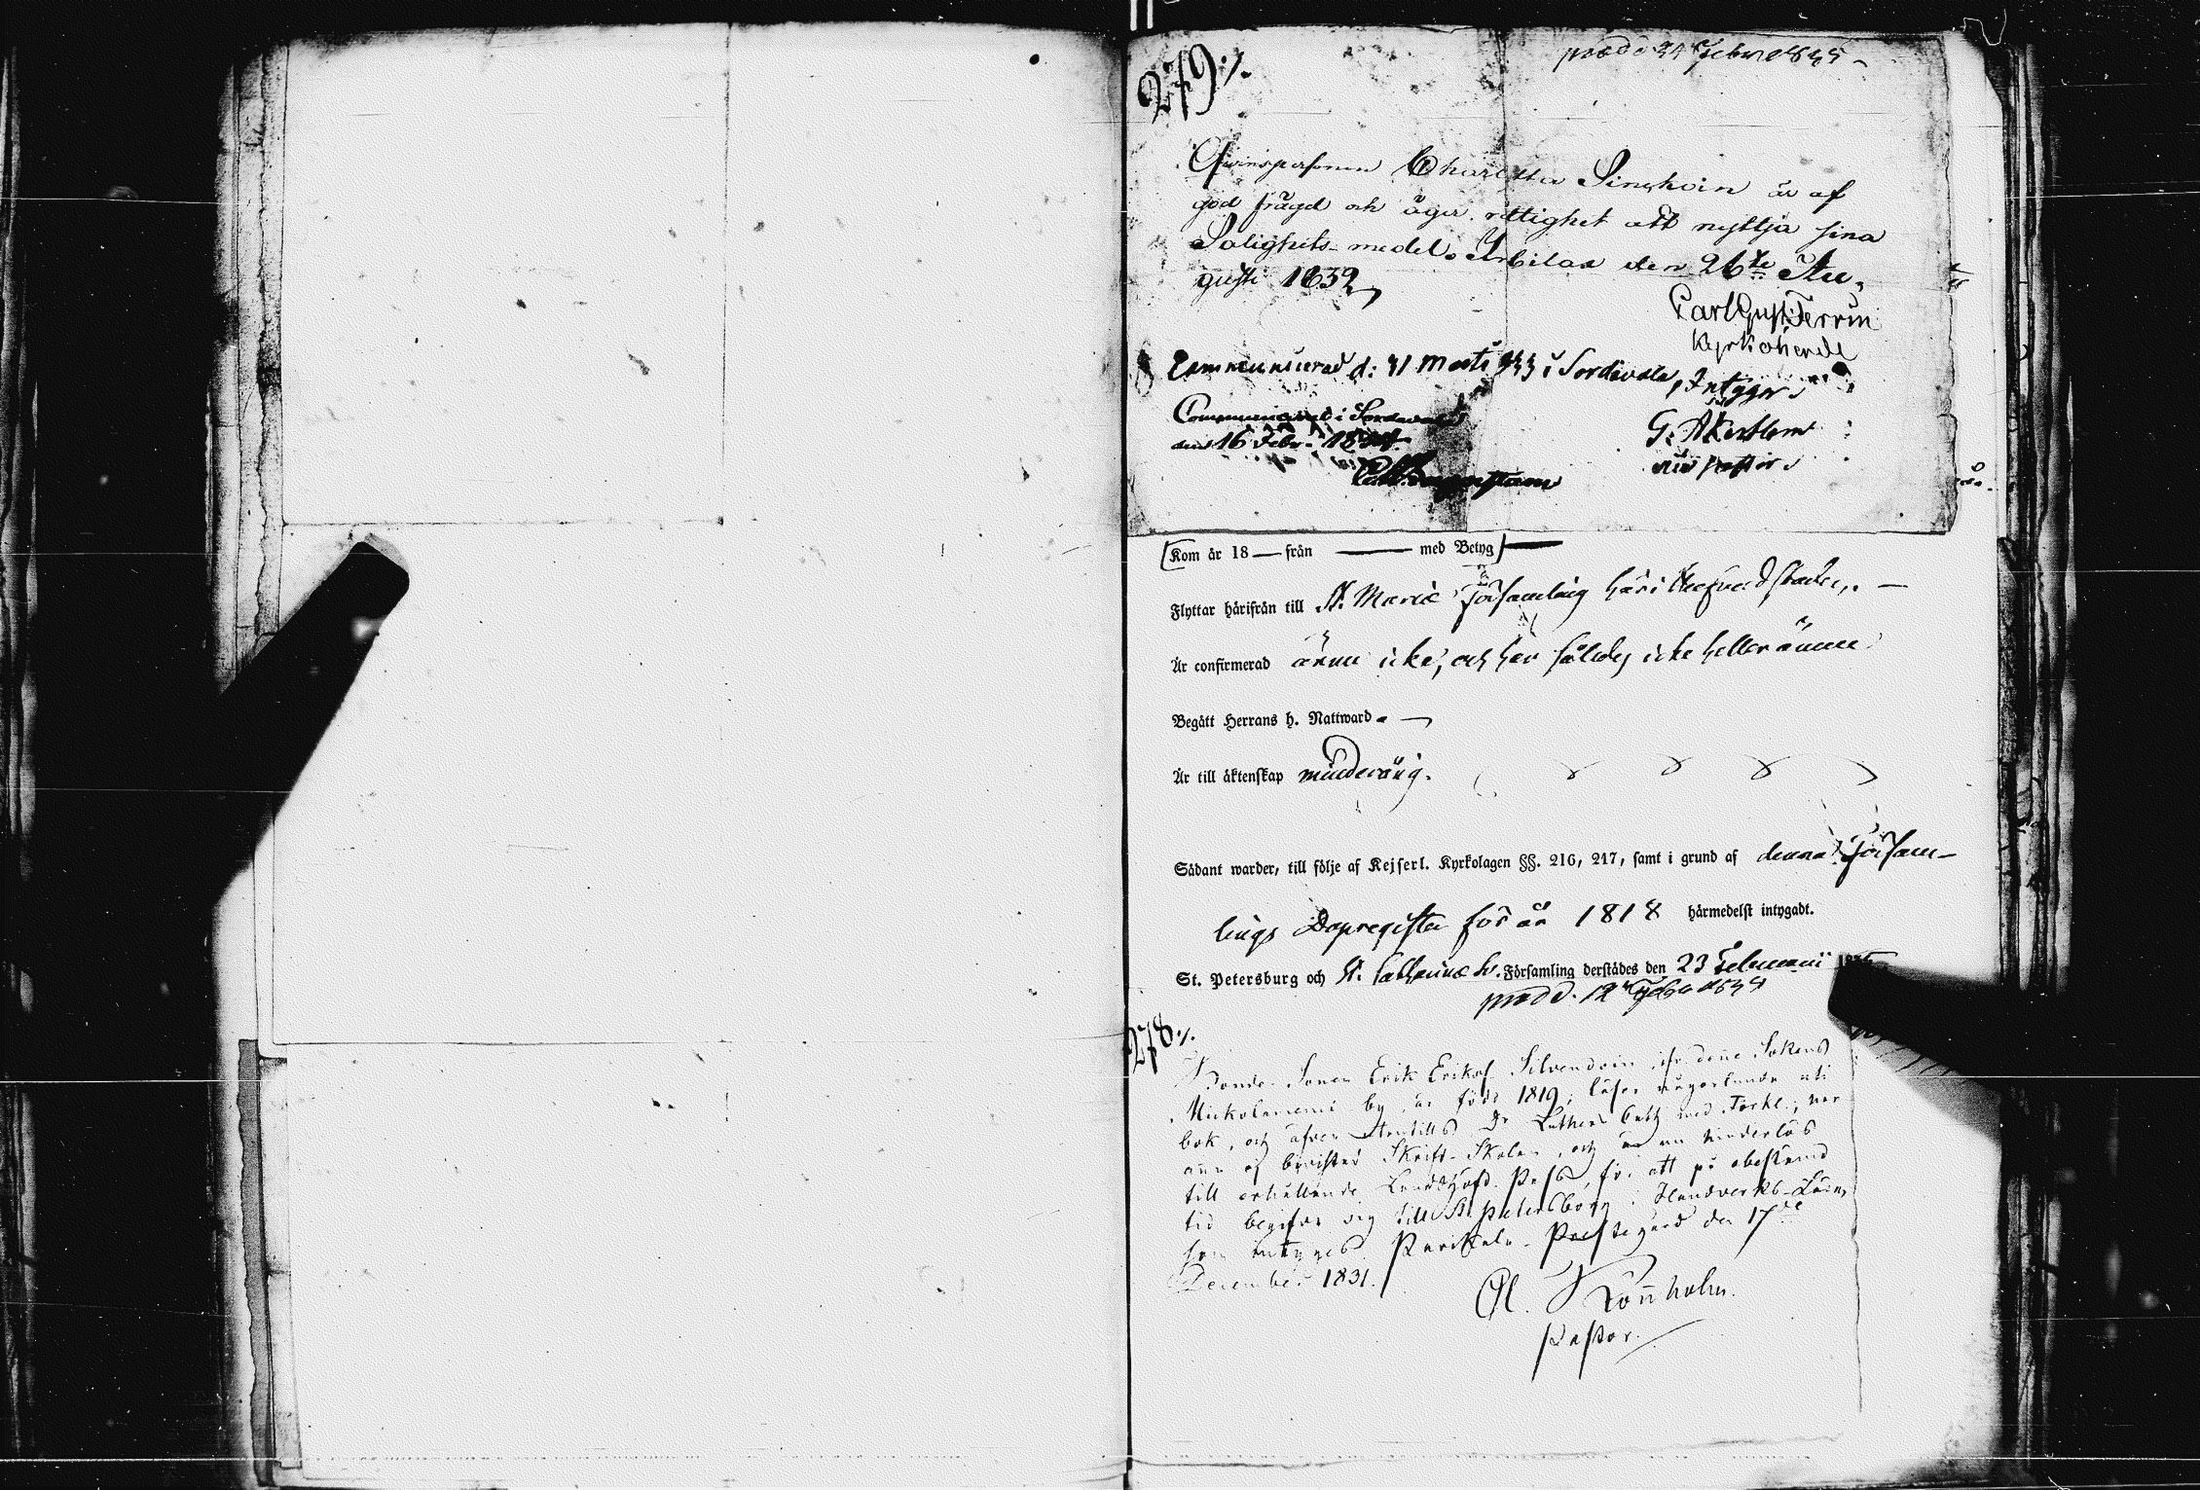 279./.
Qvinspersonen Charlotta Sinskoin är af
god frägd och äger rettighet att nyttja sina
Salighets-medel. Imbilax den 26te Au-
gusti 1832
Carl Gust. Ferrin
Kyrkoherde
Communicerad d: 31 Marti 833 i Sordavala, Intygar
G. Åkerblom
Communicerad i Sordavala
den 16 Febr.
[Kom år 18 — från — med Betyg]
Flyttar härifrån till St. Mariæ Församling här i hufvudstaden. —
Är confirmerad ännu icke, och har således icke heller ännu
Begått Herrans h. Nattward. —
Är till äktenskap minderårig.
Sådant warder, till följe af Kejserl. Kyrkolagen §§. 216, 217, samt i grund af denna Församl-
lings Dopregister för år 1818 härmedelst intygadt.
St. Petersburg och St. Catharinæ Sv. Församling derstädes den 23 Februarii
prod. 12
278./.
Bonde-Sonen Erik Eriksf Silvendoin ifr. denne Sokens
Mickolanemi by, är född 1819; läser någorlunda uti
bok, och äfven utantill Dr Luthers Cath med Förkl.; har
ännu ej bevistat Skrift-Skolan, och är en hinderlös
till erhållande Landshöfd. Pass, för att på obestämd
tid begifva sig till St. Petersborg i Handverks-Lära,
som intygas. Parikkala Prestegård den 17de
December 1831.
Lönnholm.
Pastor.